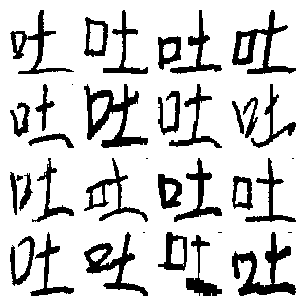 吐吐吐吐
吐吐吐吐
吐吐吐吐
吐吐吐吐